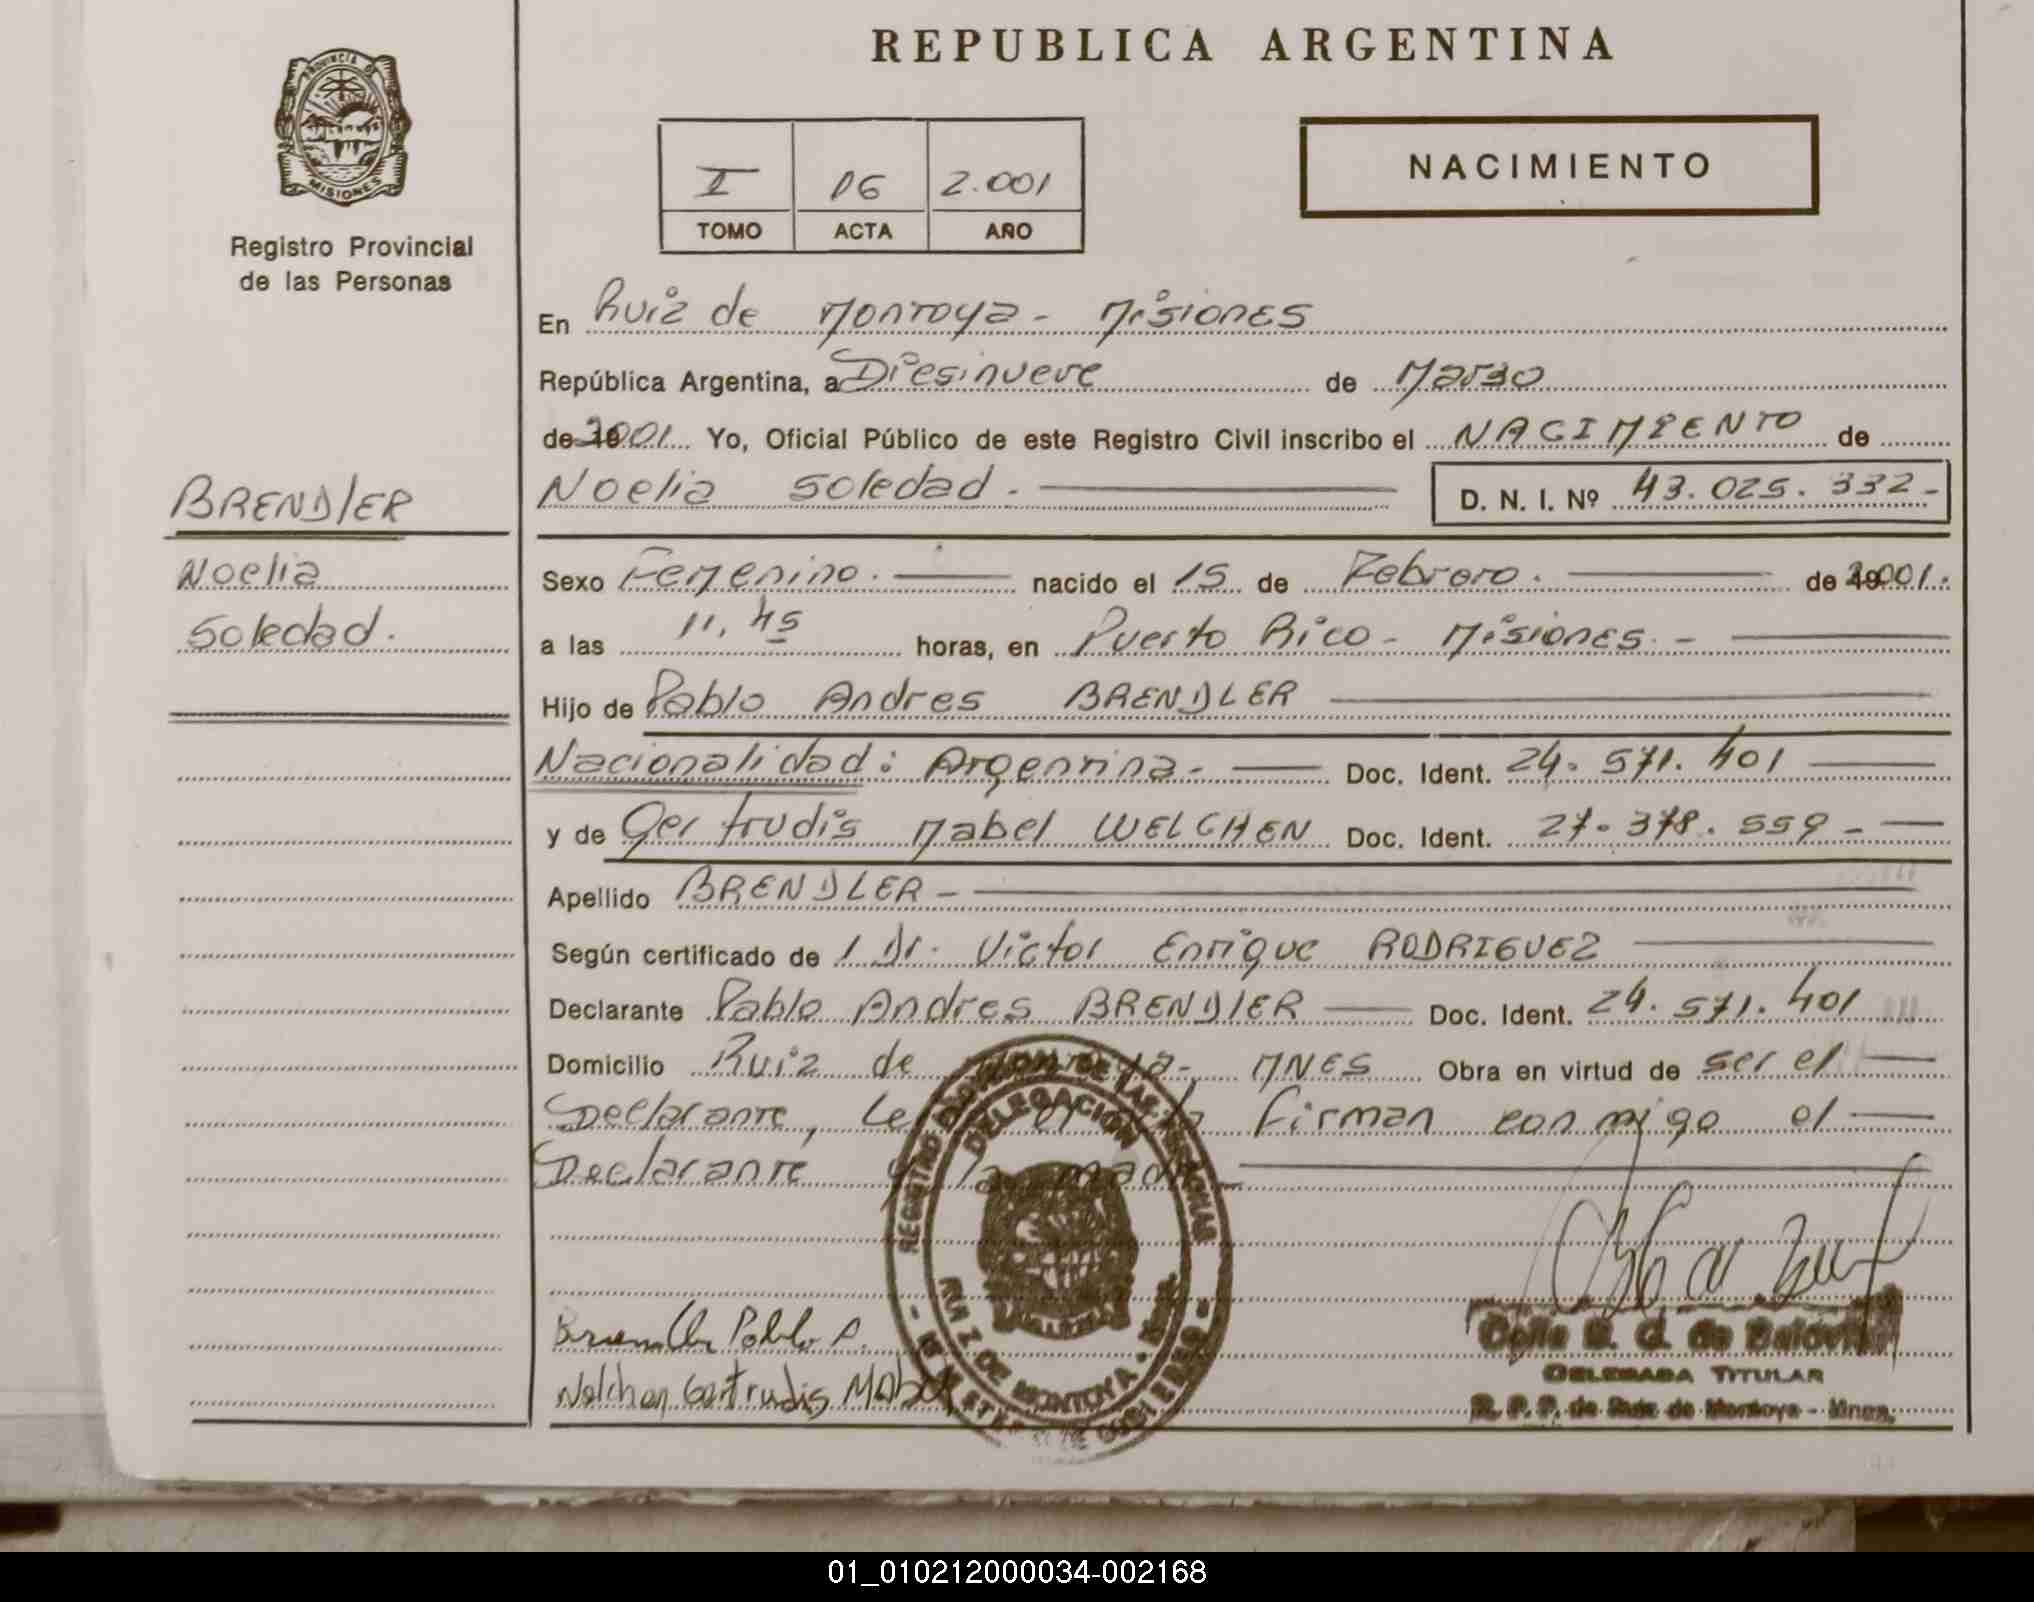 REPUBLICA ARGENTINA
PROVINCIA DE
MISIONES
Registro Provincial
de las Personas
I 06 2.001
TOMO ACTA AÑO
NACIMIENTO
En Ruiz de Montoya - Misiones
República Argentina, a Diesinueve de Marzo
de 2001 Yo, Oficial Público de este Registro Civil inscribo el NACIMIENTO de
Noelia Soledad. - D. N. I. Nº 43.025.332-
BRENDLER
Noelia
Soledad.
Sexo Femenino. nacido el 15 de Febrero. de 2001.
a las 11,45 horas, en Puerto Rico - Misiones. -
Hijo de Pablo Andres BRENDLER
Nacionalidad: Argentina. - Doc. Ident. 24.571.401
y de Gertrudis Mabel WELCHEN Doc. Ident. 27.378.559 -
Apellido BRENDLER -
Según certificado de 1 Dr. Victor Enrique RODRIGUEZ
Declarante Pablo Andres BRENDLER Doc. Ident. 24.571.401
Domicilio Ruiz de Montoya -, MNES Obra en virtud de ser el
Declarante, firman conmigo el
Declarante y la madre
REGISTRO DELEGACION
RUIZ DE MONTOYA
Brendler Pablo A.
Welchen Gertrudis Mabel
DELEGADA TITULAR
R. P. P. de Ruiz de Montoya - Mnes.
01_010212000034-002168